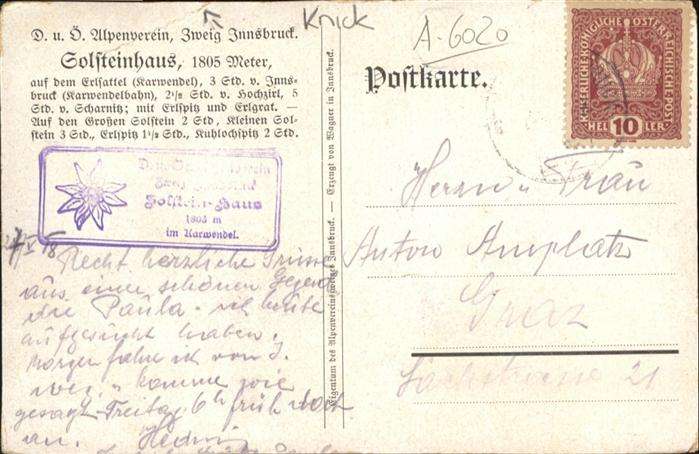 Knick
A-6020
D. u. Ö. Alpenverein, Zweig Innsbruck.
Solsteinhaus, 1805 Meter,
auf dem Erlsattel (Karwendel), 3 Std. v. Inns-
bruck (Karwendelbahn), 2½ Std. v. Hochzirl, 5
Std. v. Scharnitz; mit Erlspitz und Erlgrat. —
Auf den Großen Solstein 2 Std., Kleinen Sol-
stein 3 Std., Erlspitz 1½ Std., Kuhlochspitz 2 Std.
D. u. Ö. Alpenverein
Zweig Innsbruck
Solstein-Haus
1805 m
im Karwendel.
Recht herzliche Grüsse
aus einer schönen Gegend
die Paula - ich heute
aufgesucht haben.
Morgen fahre ich von J.
weg, u. komme wie
gesagt Freitag 6h früh dort
an. Hedwig
Eigentum des Alpenvereinszweiges Innsbruck. — Erzeugt von Wagner in Innsbruck.
Postkarte.
KAISERLICHE KÖNIGLICHE ÖSTERREICHISCHE POST
HELLER
10
Herrn u Frau
Anton Amplatz
Graz
Sackstrasse 21